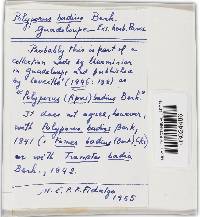 Polyporus badius Berk.
Guadeloupe — Ex. herb. Paris
Probably this is part of a
collection made by L'Herminier
in Guadeloupe and published
by Leveillé (1846: 124) as
"Polyporus (Apus) badius Berk."
It does not agree, however,
with Polyporus badius Berk.
1841 (= Fomes badius (Berk.) Cke.)
or with Trametes badia
Berk., 1842.
M. E. P. K. Fidalgo
1965